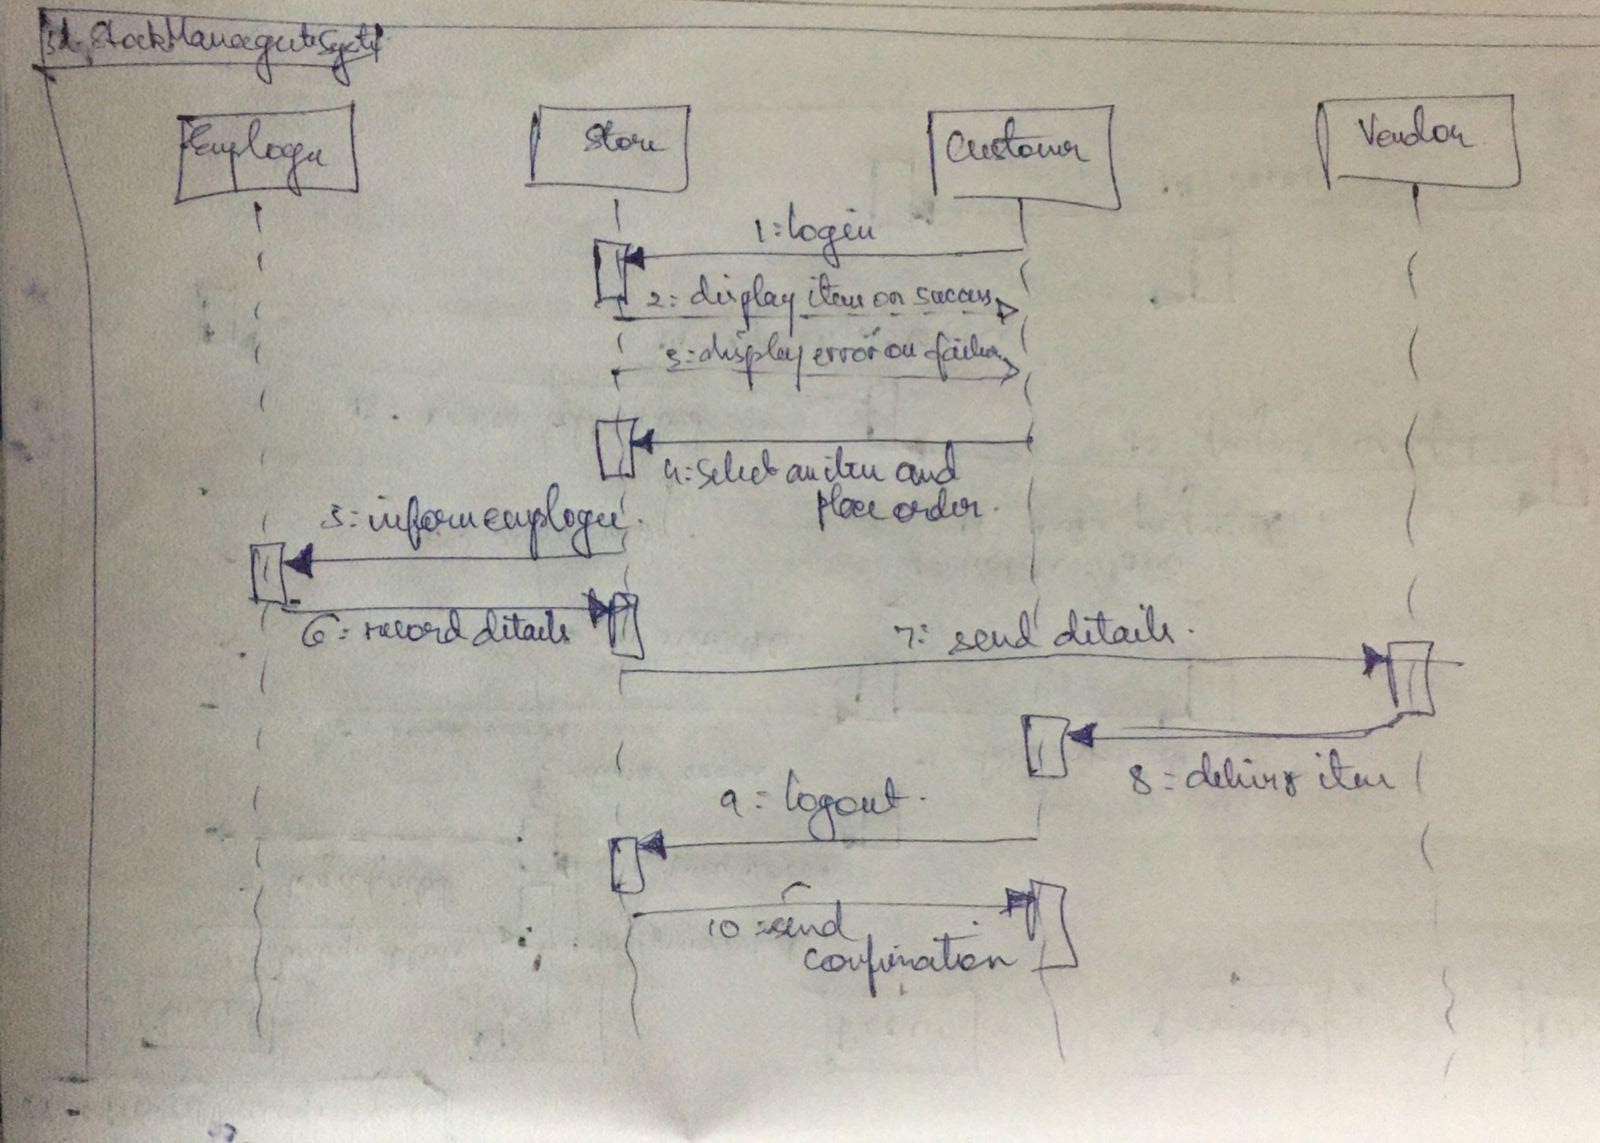 sd StockManagementSystem
Employee
Store
Customer
Vendor
1: login
2: display item on success
3: display error on failure
4: Select an item and
place order.
5: inform employee.
6: record details
7: send details.
8: deliver item
9: logout.
10: send
confirmation